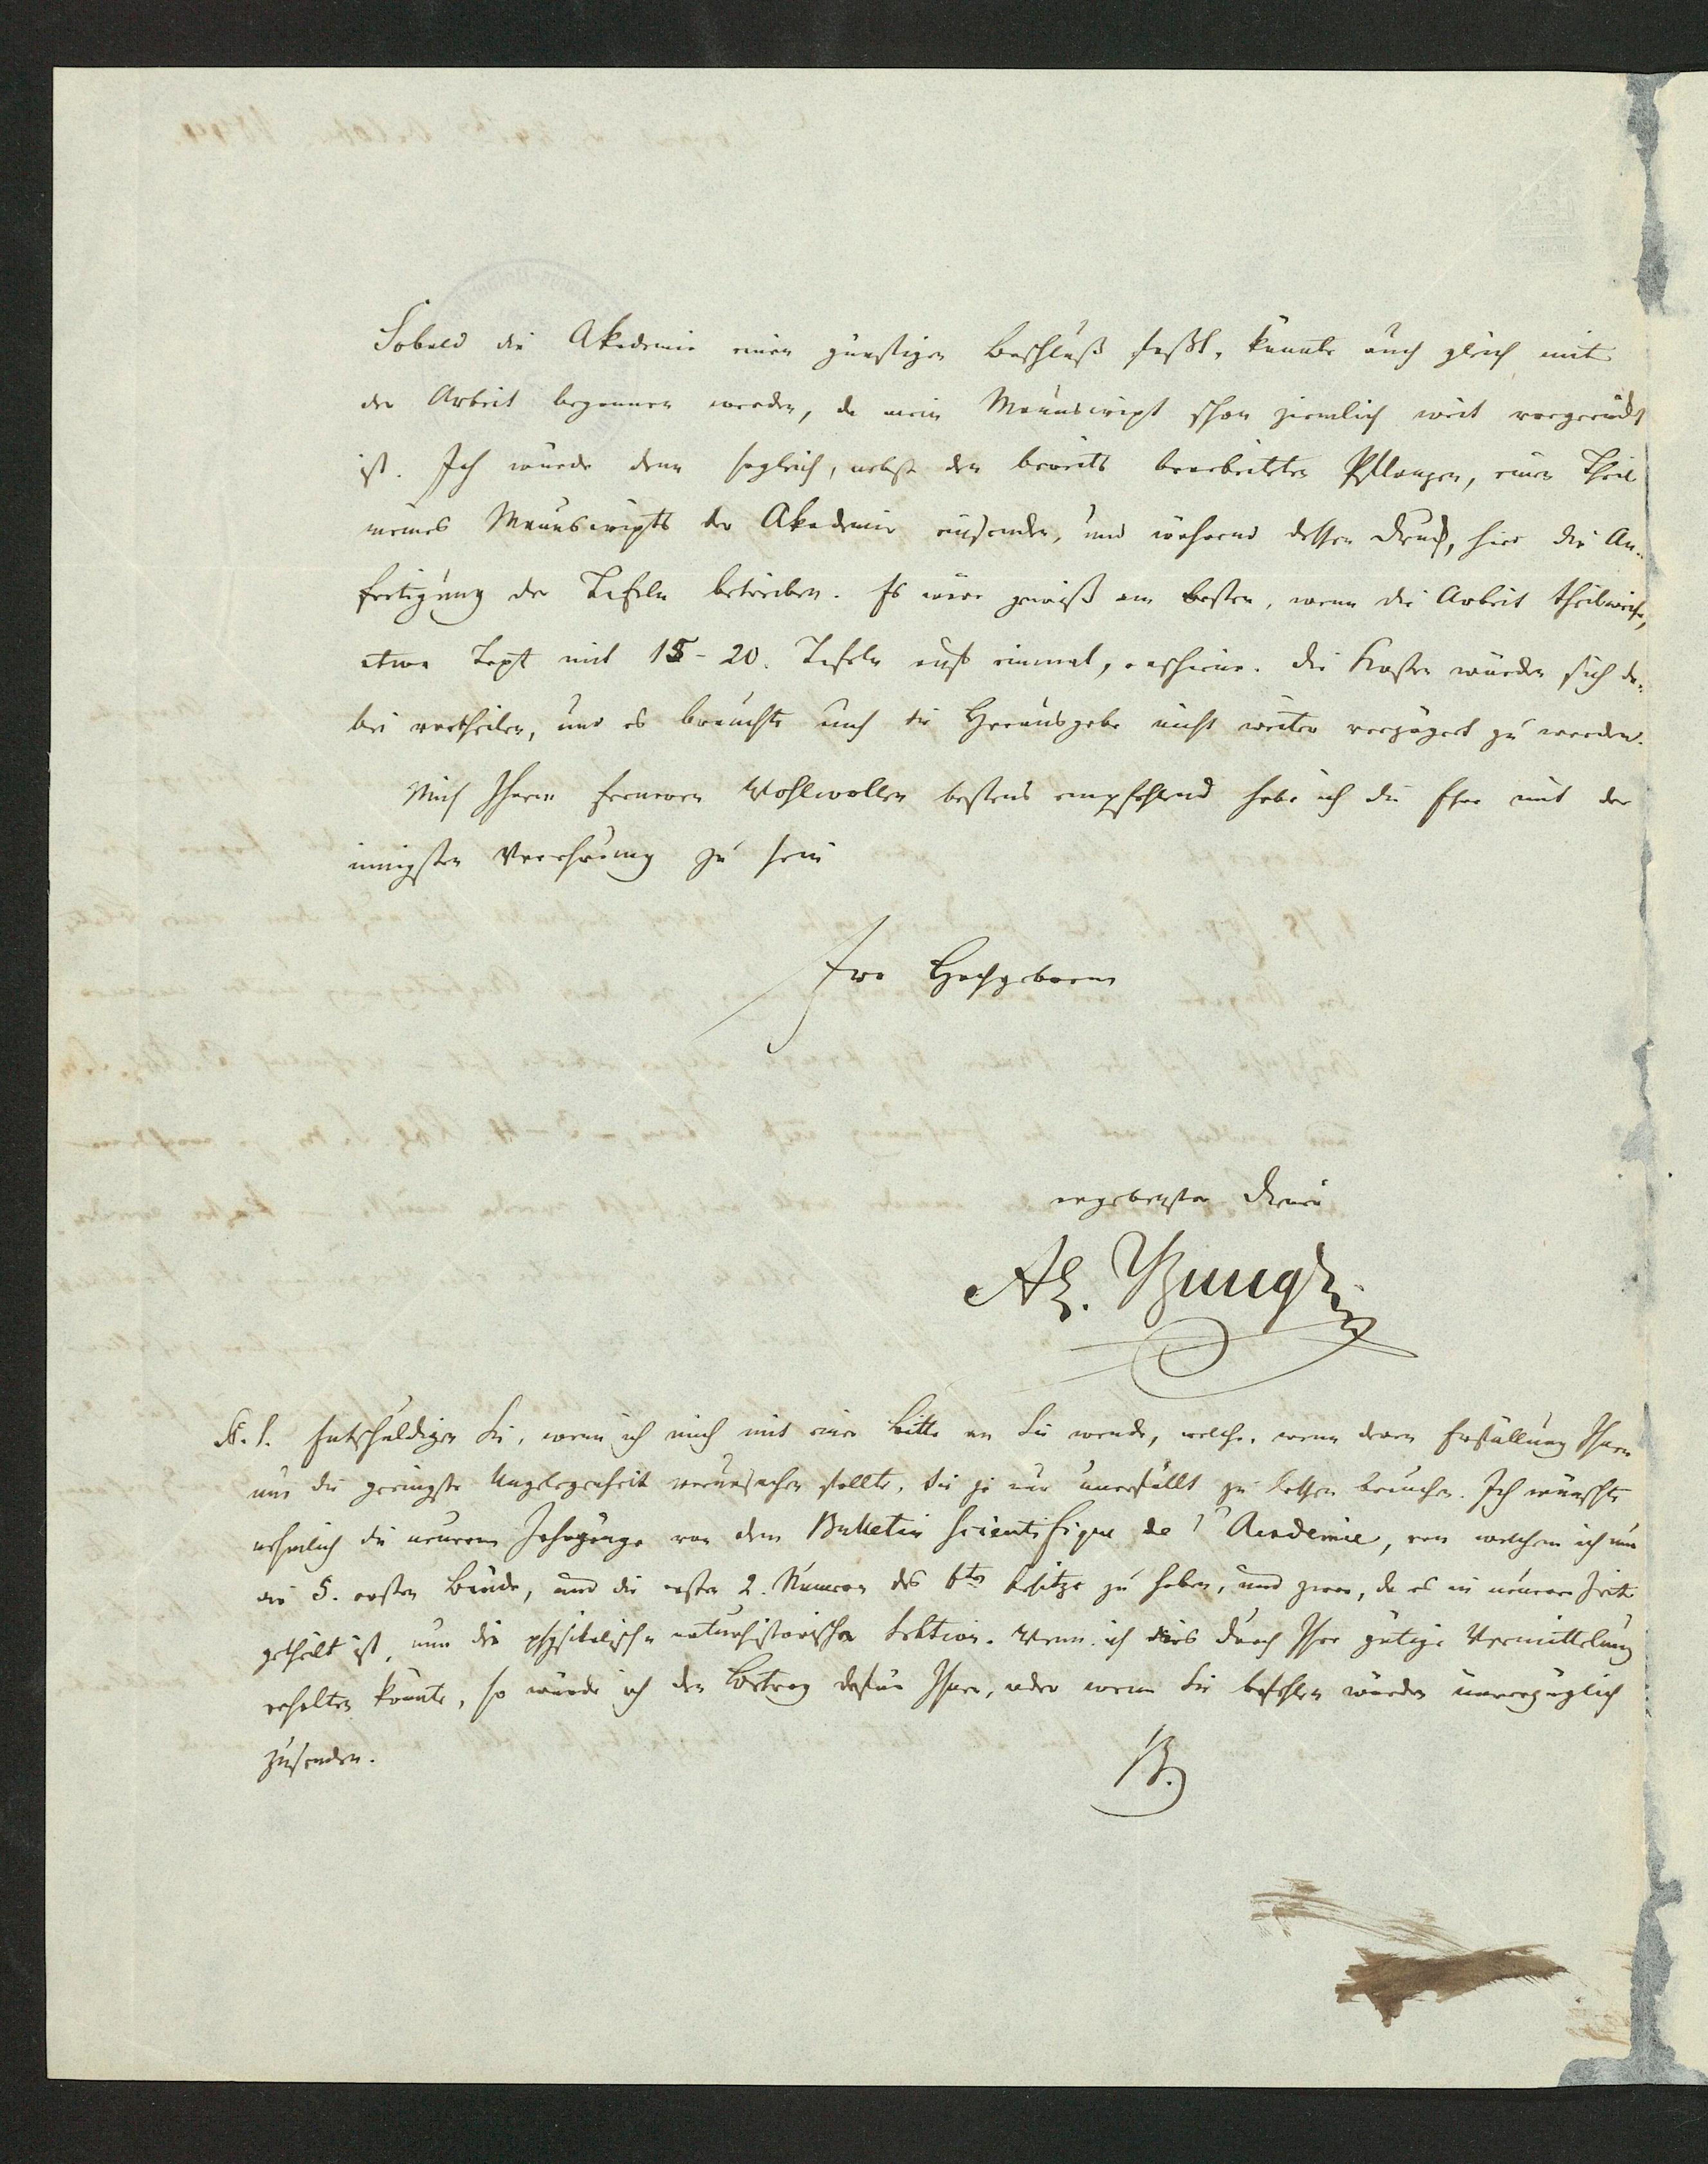 Sobald die Akademie einen günstigen Beschluß faßt, könnte auch gleich mit
der Arbeit begonnen werden, da mein Manuscript schon ziemlich weit vorgerückt
ist. Ich würde dann sogleich, nebst den bereits bearbeiteten Pflanzen, einen Theil
meines Manuscripts der Akademie einsenden, und während dessen Druck, hier die An-
fertigung der Tafeln betreiben. Es wäre gewiß am besten, wenn die Arbeit theilweise,
etwa Text mit 15-20. Tafeln auf einmal, erschiene. Die Kosten würden sich da-
bei vertheilen, und es brauchte auch die Herausgabe nicht weiter verzögert zu werden.
Mich Ihrem ferneren Wohlwollen bestens empfehlend habe ich die Ehre mit der
innigsten Verehrung zu sein
Ew. Hochgeboren
ergebenster Diener
Al. Bunge
P. S. Entschuldigen Sie, wenn ich mich mit einer Bitte an Sie wende, welche, wenn deren Erfüllung Ihnen
nur die geringste Ungelegenheit verursachen sollte, Sie ja nur unerfüllt zu lassen brauchen. Ich wünschte
nehmlich die neueren Jahrgänge von dem Bulletin scientifique de l'Academie, von welchem ich nur
die 5. ersten Bände, und die ersten 2. Numern des 6ten besitze zu haben, und zwar, da es in neuerer Zeit
getheilt ist, nur die physikalisch-naturhistorische Sektion. Wenn ich dies durch Ihre gütige Vermittelung
erhalten könnte, so würde ich den Betrag dafür Ihnen, oder wem Sie befehlen würden unverzüglich
zusenden.
B.